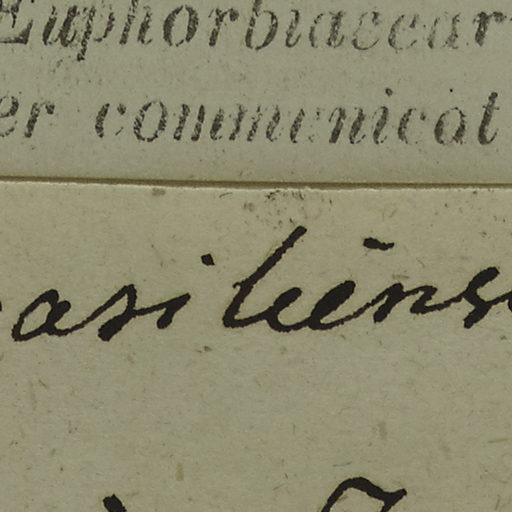 Euphorbiacear
er communicat
asiliens